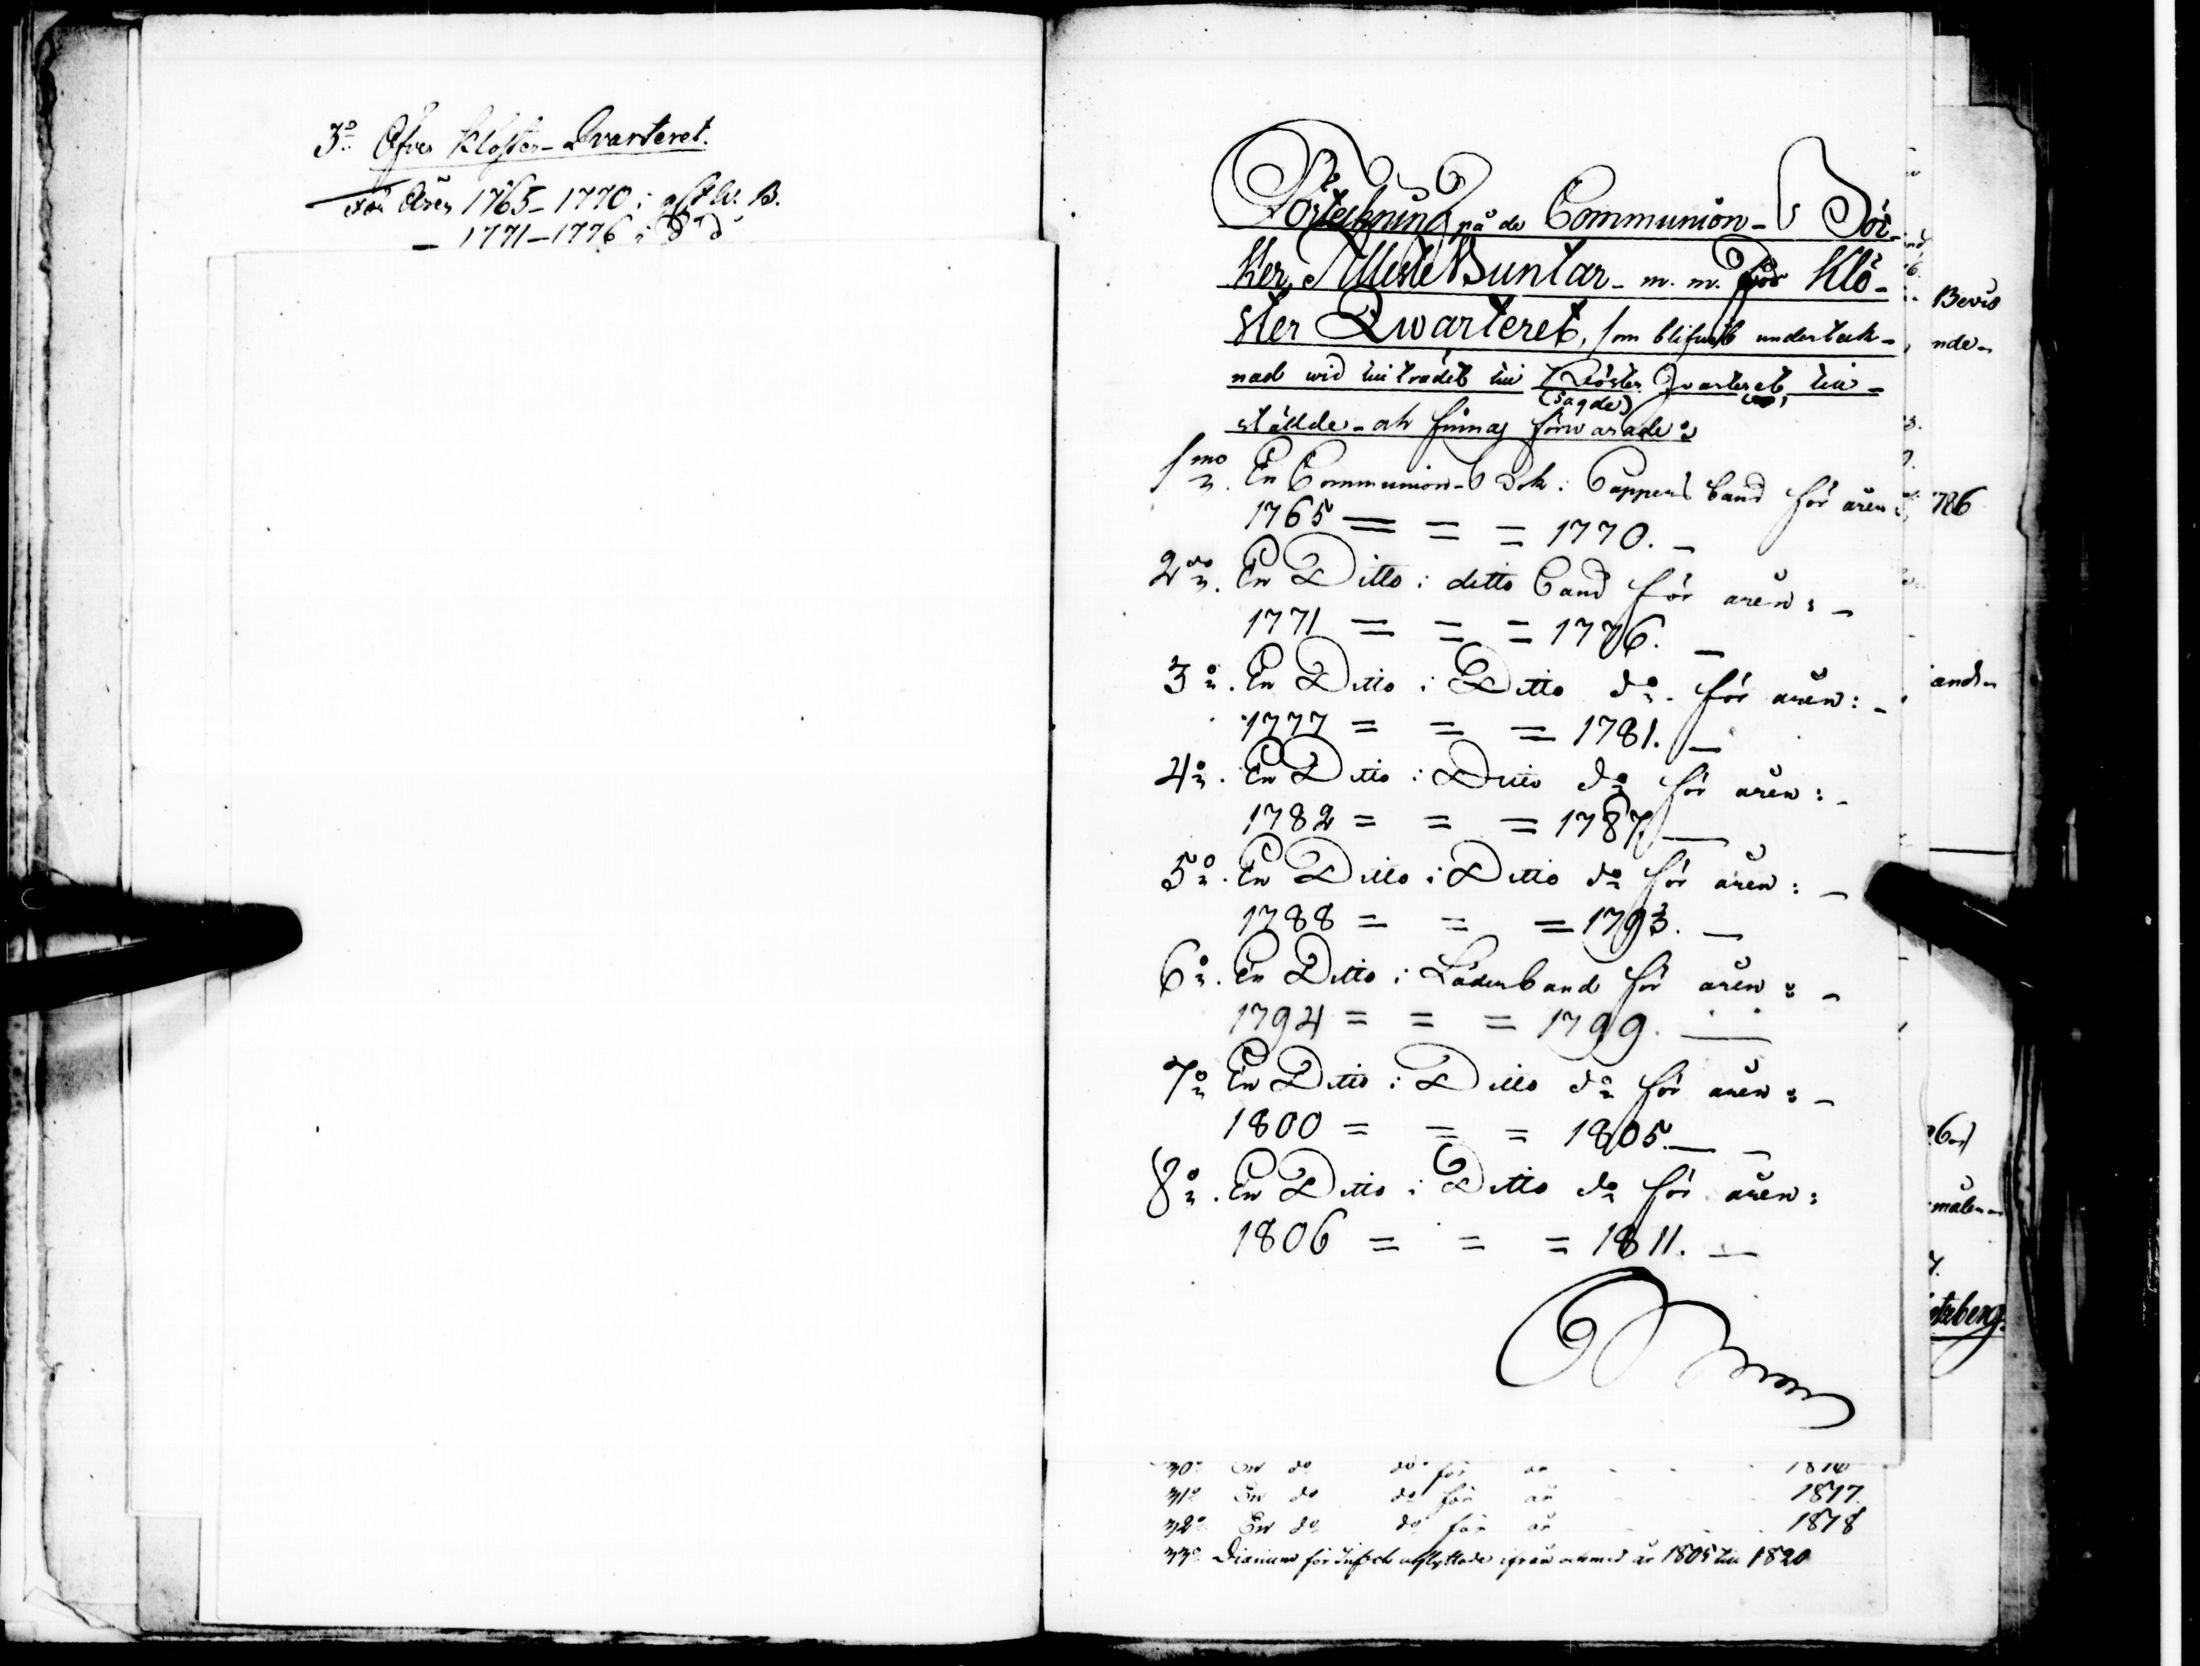 3:o Öfver Kloster-Qvarteret.
För Åren 1765–1770 i
– 1771–1776 i d:o d:o
Förteckning på de Communion- Böc-
ker, Atteste Buntar – m. m. för Klö-
ster Qwarteret, som blifwit underteck-
nad wid tillträdet till Klöster Qvarteret till-
(sagde)
stälde – och finnas förwarade:
1mo. En Communion-Bok i Pappers band för åren
1765 = = = 1770. –
2do. En Ditto i ditto band för åren: –
1771 = = = 1776. –
3o. En Ditto i Ditto do – för åren: –
1777 = = = 1781. –
4o. En Ditto i Ditto do för åren: –
1782 = = = 1787. –
5o. En Ditto i Ditto do för åren: –
1788 = = = 1793. –
6o. En Ditto i Läderband för åren: –
1794 = = = 1799. –
7o En Ditto i Ditto do för åren: –
1800 = = = 1805. – –
8o. En Ditto i Ditto do för åren:
1806 = = = 1811. –
30o En do do för år - - - 1816
31o En do do för år - - - 1817.
32o En do do för år - - - 1818
33o Diarium för Inflyttade ifrån och med år 1805 till 1820
Bevis
nde–
1786
ande
målen
tzberg.